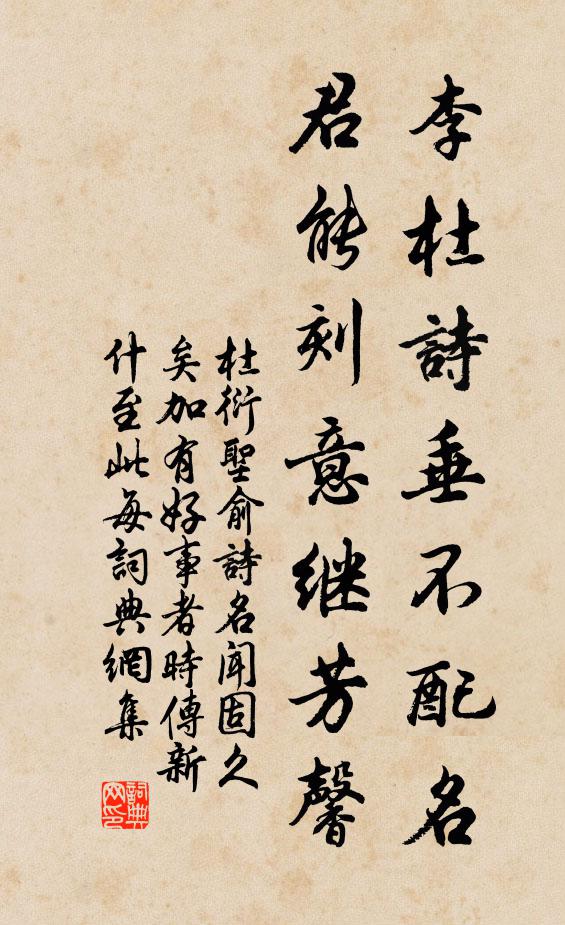 李杜詩垂不配名
君能刻意継芳馨
杜衍聖俞詩名聞固久
矣加有好事者時傳新
什至此每詞典網集
詞典
网印